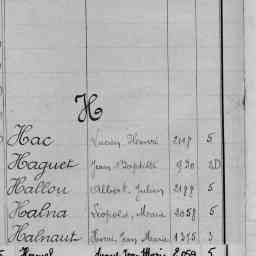 H
Hac Lucien Henri 2117 5
Haguet Jean Baptiste 920 2D
Hallou Albert Julien 2199 5
Halna Léopold, Marie 2057 5
Halnaut Pierre Jean Marie 1375 3
Hamel Jean Marie 2059 5